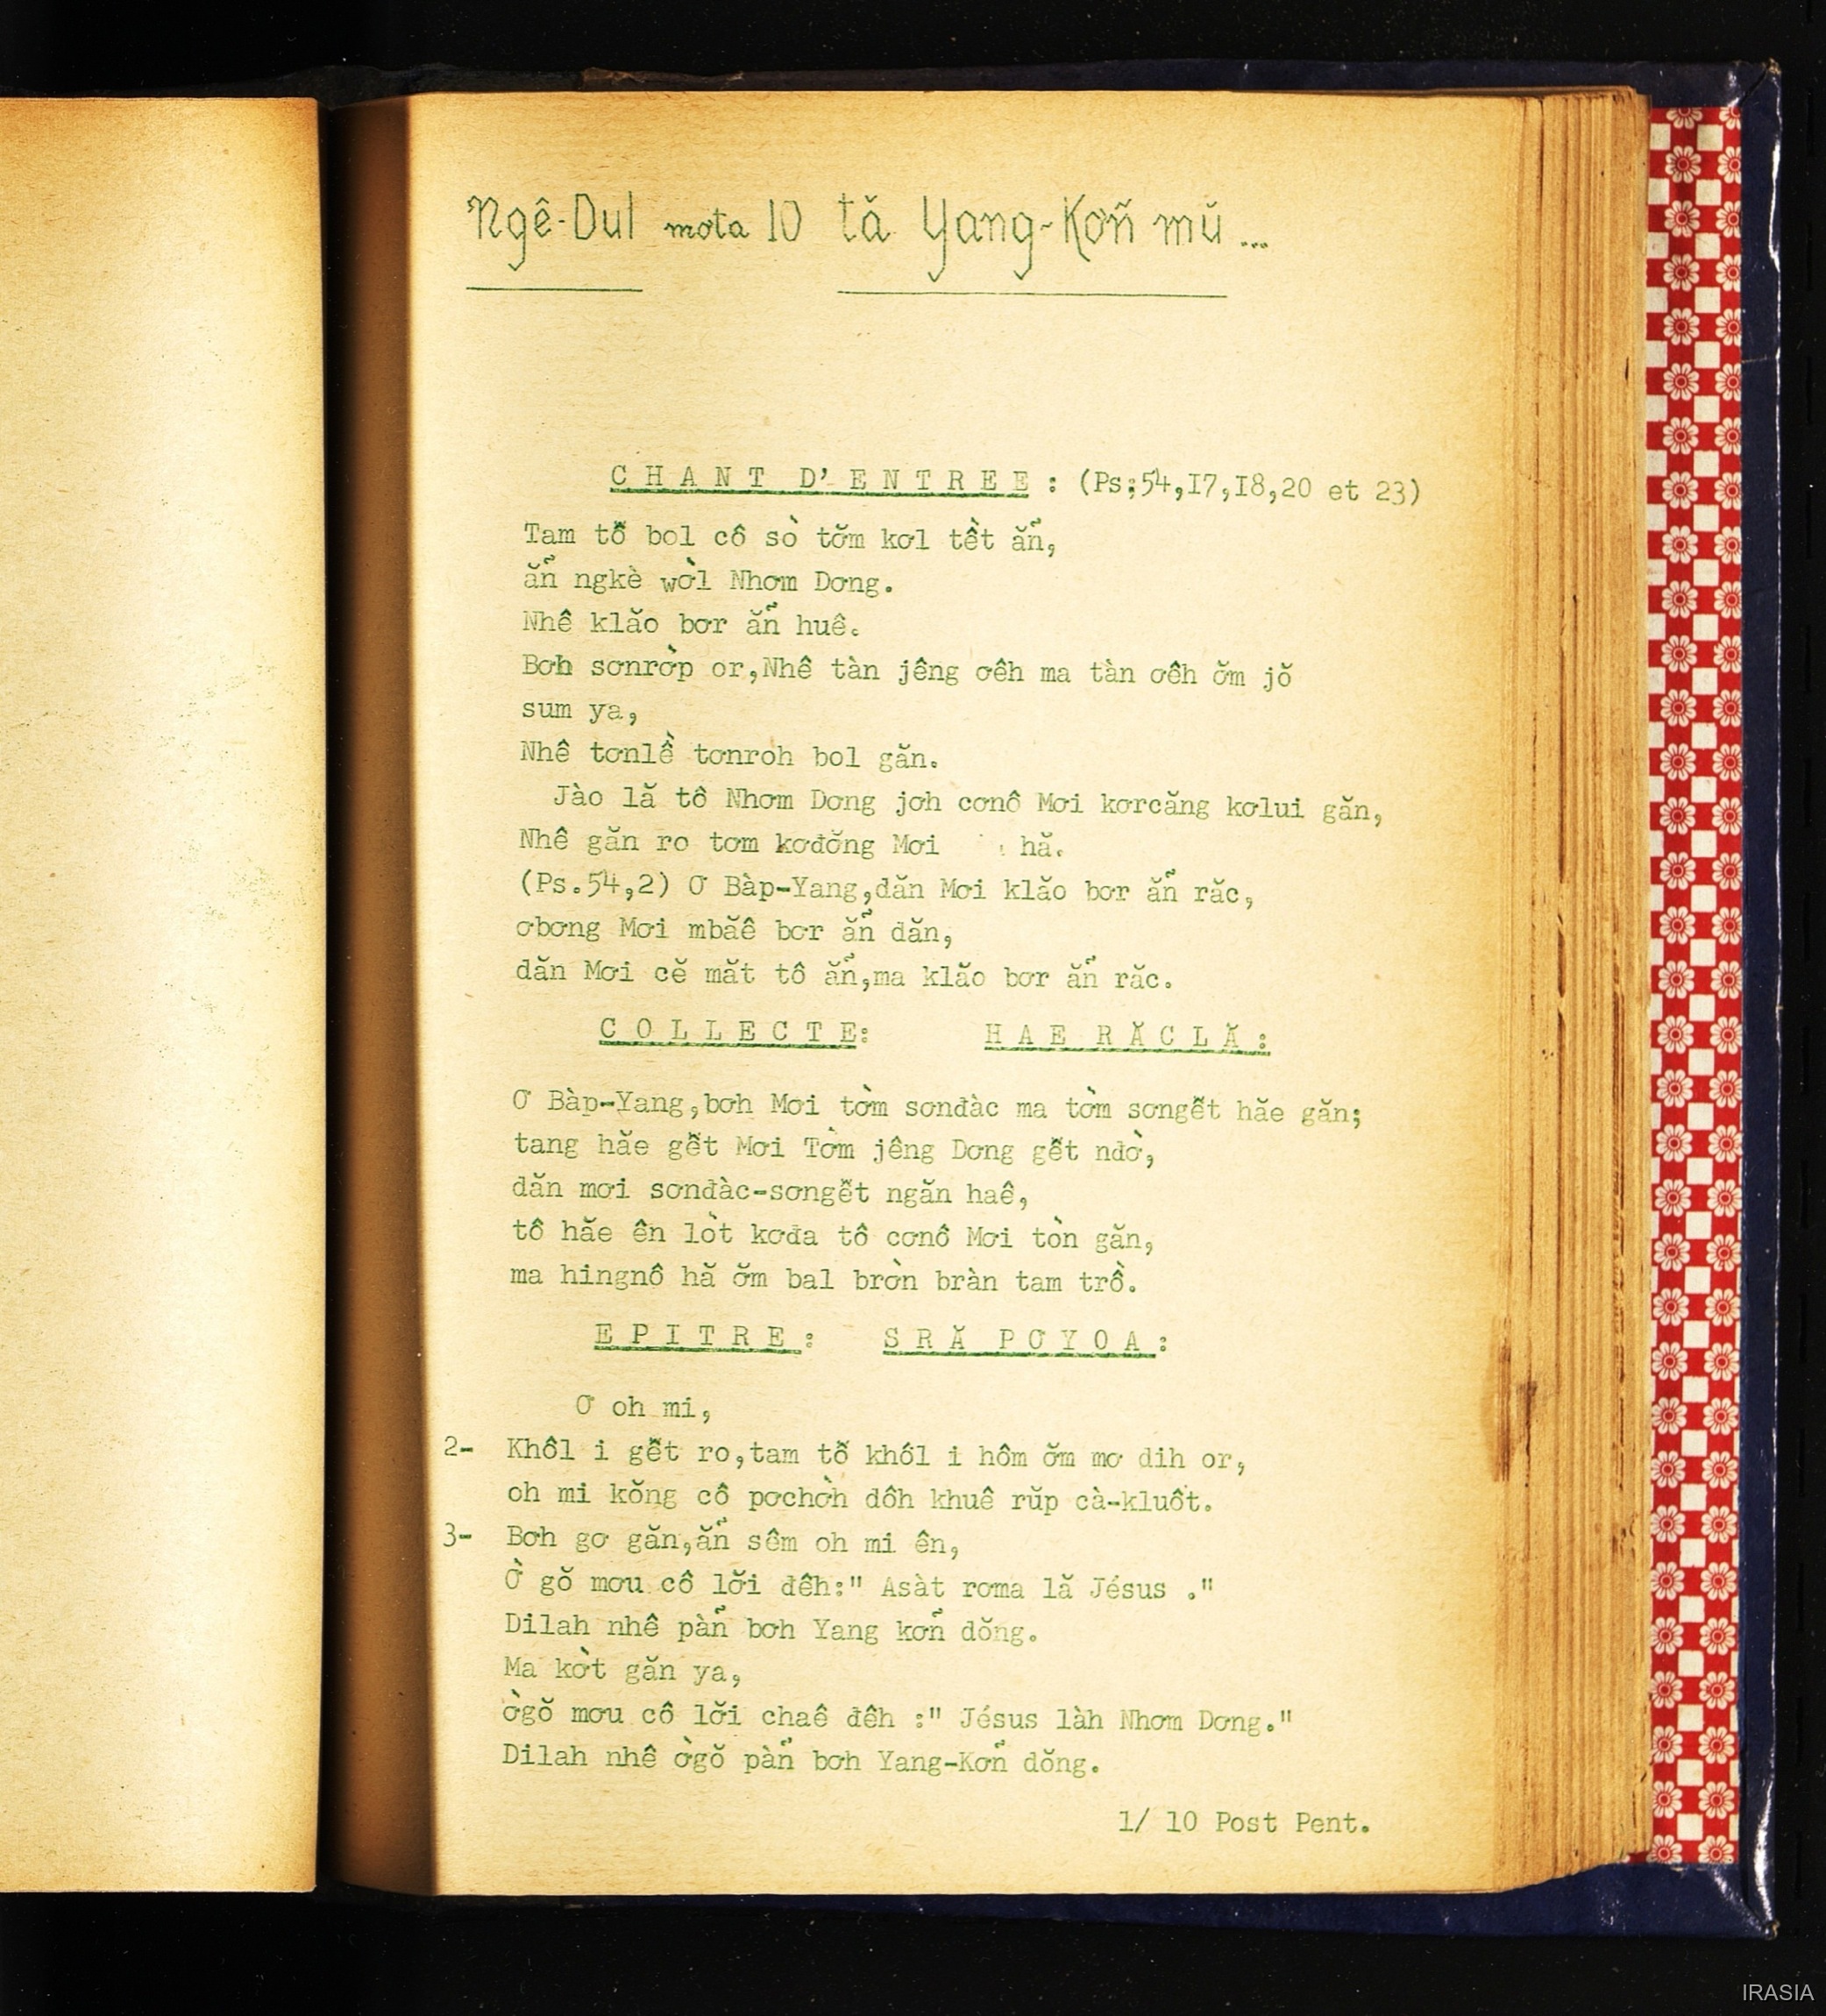 Ngê-Dul mơta 10 tă Yang-Kơñ mŭ ...
CHANT D'ENTREE : (Ps;54,I7,I8,20 et 23)
Tam tơ̆ bol cô sò tơ̆m kơl tềt ăñ,
ăñ ngkè wờl Nhơm Dơng.
Nhê klăo bơr ăñ huê.
Bơh sơnrờp or,Nhê tàn jêng ơêh ma tàn ơêh ơ̆m jŏ
sum ya,
Nhê tơnlề tơnroh bol găn.
Jào lă tô Nhơm Dơng jơh cơnô Mơi kơrcăng kơlui găn,
Nhê găn ro tơm kơđŏng Mơi hă.
(Ps.54,2) Ơ Bàp-Yang,dăn Mơi klăo bơr ăñ răc,
ơbơng Mơi mbăê bơr ăñ dăn,
dăn Mơi cĕ măt tô ăñ,ma klăo bơr ăñ răc.
COLLECTE: HAE RĂCLĂ:
Ơ Bàp-Yang,bơh Mơi tờm sơnđàc ma tờm sơngê̆t hăe găn;
tang hăe gê̆t Mơi Tờm jêng Dơng gê̆t nđờ,
dăn mơi sơnđàc-sơngê̆t ngăn haê,
tô hăe ên lòt kơđa tô cơnô Mơi tòn găn,
ma hingnô hă ơ̆m bal brờn bràn tam trồ.
EPITRE: SRĂ PƠYOA:
Ơ oh mi,
2- Khôl i gê̆t ro,tam tơ̆ khól i hôm ơ̆m mơ dih or,
oh mi kŏng cô pơchờh đôh khuê rŭp cà-kluôt.
3- Bơh gơ găn,ăñ sêm oh mi ên,
Ờ gŏ mơu cô lơ̆i đêh:" Asàt rơma lă Jésus ."
Dilah nhê pàñ bơh Yang kơñ dŏng.
Ma kờt găn ya,
ờgŏ mơu cô lơ̆i chaê đêh :" Jésus làh Nhơm Dơng."
Dilah nhê ờgŏ pàñ bơh Yang-Kơñ dŏng.
1/ 10 Post Pent.
IRASIA